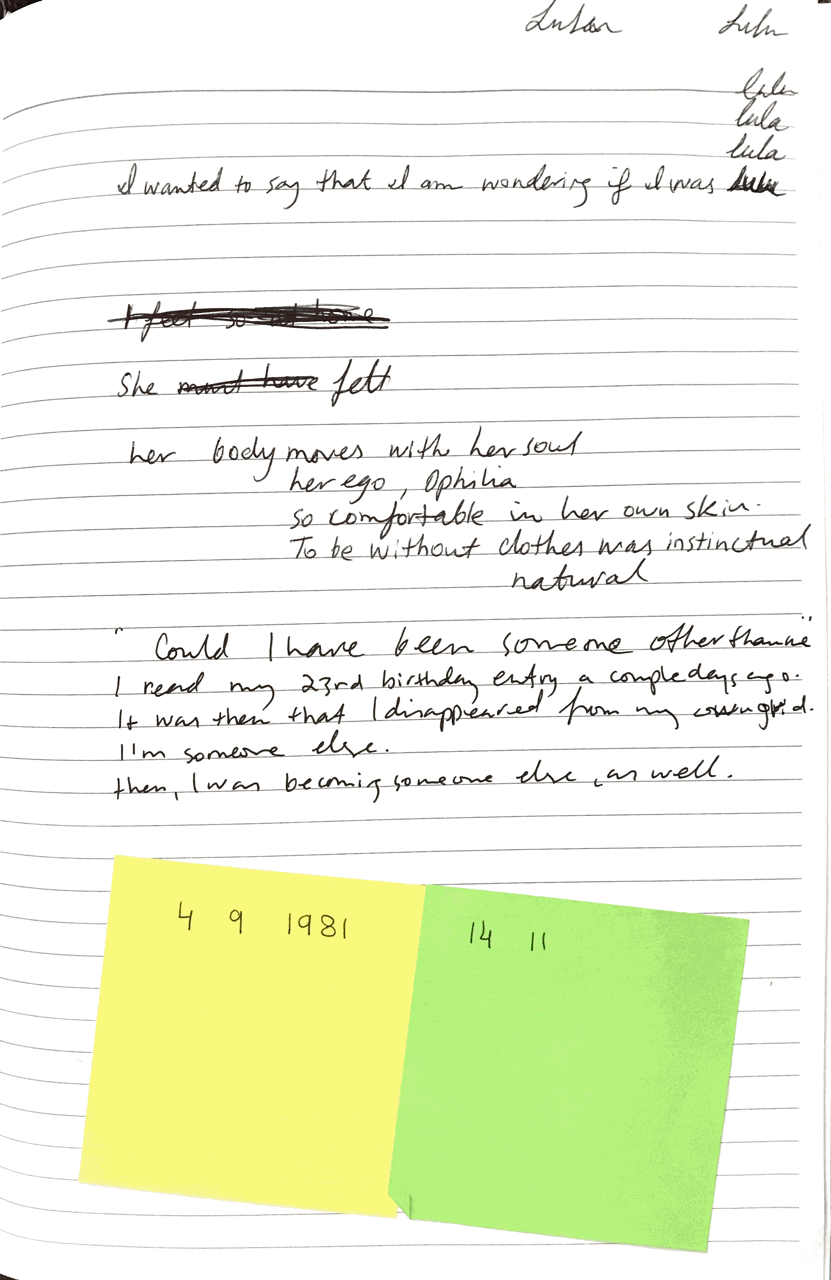 Lulu
lulu
lula
lula
I wanted to say that I am wondering if I was lulu
I feel so at home
She must have felt
her body moves with her soul
her ego, Ophilia
so comfortable in her own skin.
To be without clothes was instinctual
natural
" Could I have been someone other than me "
I read my 23rd birthday entry a couple days ago.
It was then that I disappeared from my own grid.
I'm someone else.
then, I was becoming someone else, as well.
4 9 1981 14 11